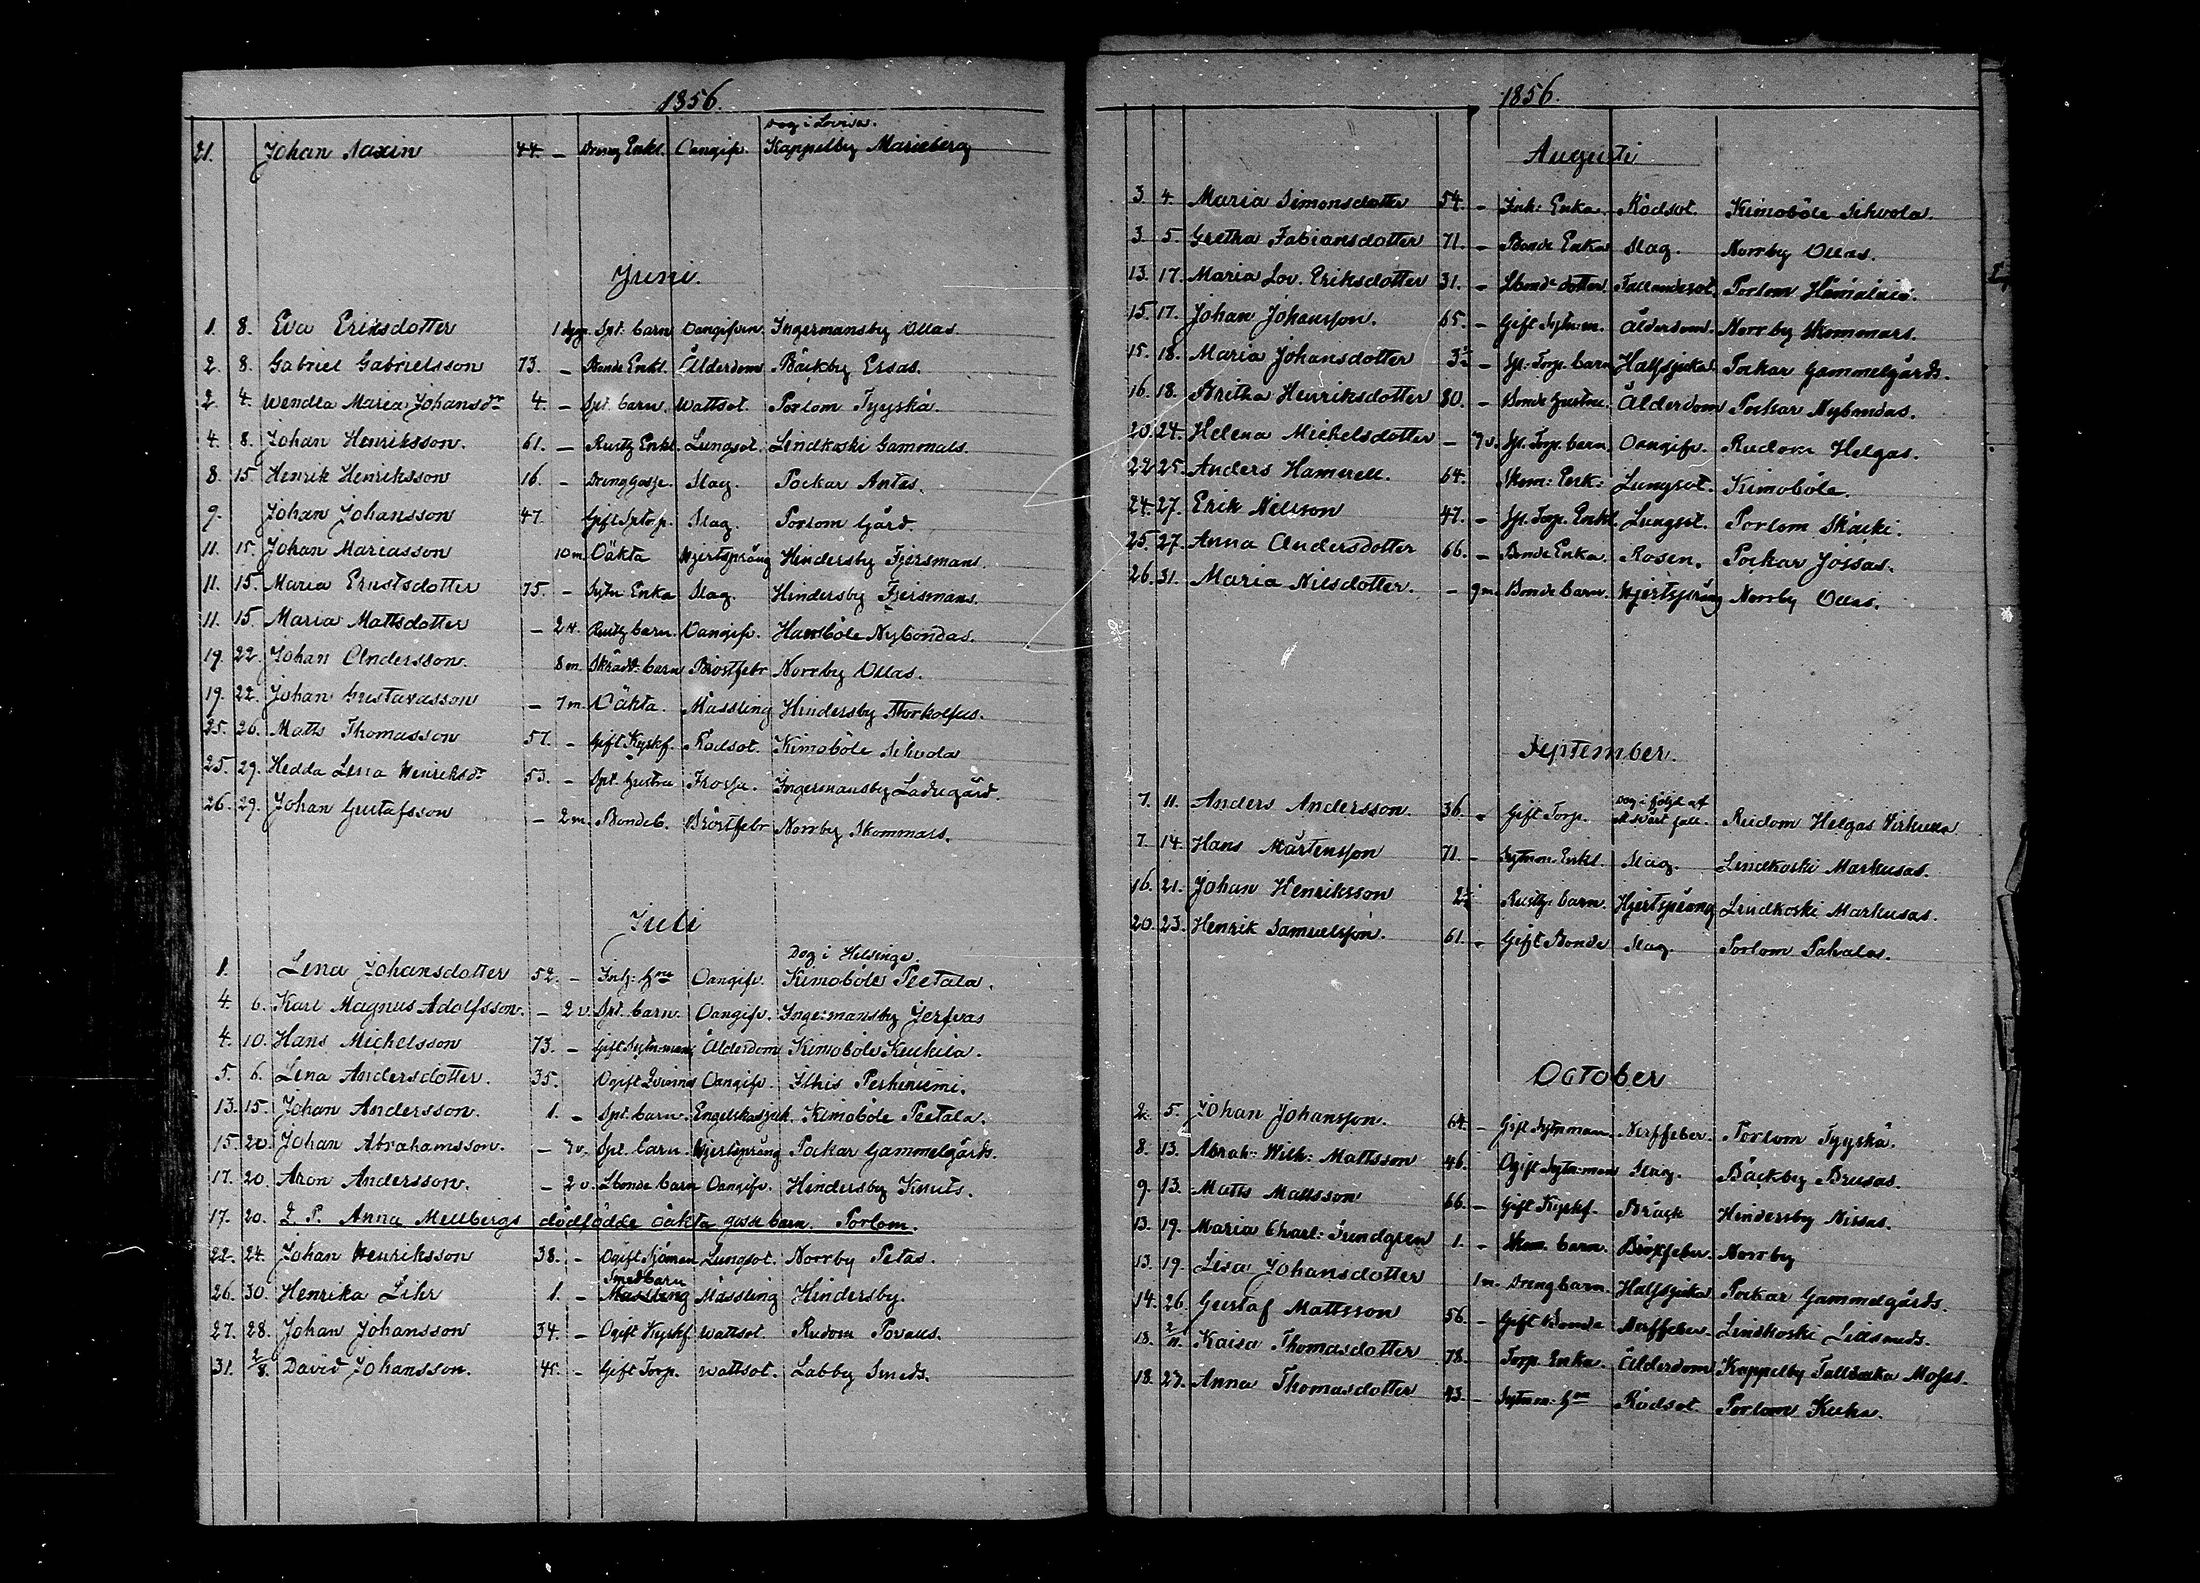 1856.
Dog i Lovisa.
21. Johan Saxin 44. – Dreng Enkl. Oangifv. Kappelby Marieberg
Juni.
1. 8. Eva Eriksdotter 1 dyg. Spt. barn Oangifven Ingermansby Ollas
2. 8. Gabriel Gabrielsson 73. – Bonde Enkl. Ålderdom Bäckby Ersas.
2. 4. Wendla Maria Johansdr 4. – Spt. barn. Wattsot. Porlom Tyyskä.
4. 8. Johan Henriksson. 61. – Rustg Enkl. Lungsot. Lindkoski Gammals.
8. 15. Henrik Henriksson 16. – Drenggosse. Slag. Pockar Antas.
9. Johan Johansson 47. Gift Sptorp. Slag. Porlom Gård.
11. 15. Johan Mariasson 10 m. Oäkta Hjertsprång Hindersby Fjersmans.
11. 15. Maria Ernstsdotter 75. – Sytn Enka Slag. Hindersby Fjersmans.
11. 15. Maria Mattsdotter – 2 v. Rustg barn. Oangifv. Hardböle Nybondas.
19. 22. Johan Andersson. 8 m. Skrädd. barn Bröstfebr Norrby Ollas.
19. 22. Johan Gustavasson – 7 m. Oäkta. Mässling Hindersby Thorkolfus.
25. 26. Matts Thomasson 57. – Gift Kyrkf. Rödsot. Kimoböle Sihvola
25. 29. Hedda Lena Henriksdr 53. – Spt. hustru Frossa. Ingermansby Ladugård.
26. 29. Johan Gustafsson – 2 m. Bondeb. Bröstfebr Norrby Skommars.
Juli
Dog i Helsinge.
1. Lena Johansdotter 52. – Inh: hru Oangifv. Kimoböle Peetala.
4. 6. Karl Magnus Adolfsson. – 2 v. Spt. barn. Oangifv. Ingermansby Jerfvas
4. 10. Hans Michelsson 73. – Gift Sytn:man Ålderdom Kimoböle Keikila.
5. 6. Lena Andersdotter. 35. Ogift Qvinna Oangifv. Ilhis Perheniemi.
13. 15. Johan Andersson. 1. – Spt. barn. Engelskasjuk. Kimoböle Peetala.
15. 20. Johan Abrahamsson. – 7 v. Spt. barn. Hjertsprång Pockar Gammelgårds.
17. 20. Aron Andersson. – 2 v. Lbonde barn Oangifv. Hindersby Knuts.
17. 20. Q. P. Anna Mellbergs dödfödde oäkta gosse barn. Porlom.
22. 24. Johan Henriksson 38. – Ogift Sjöman Lungsot. Norrby Petas.
Smedbarn
26. 30. Henrika Lihr 1. – Mässling Mässling Hindersby.
27. 28. Johan Johansson 34. – Ogift Kyrkf. Wattsot. Rudom Povaus.
31. 2/8. David Johansson. 45. – Gift Torp. Wattsot. Labby Smeds.
1856.
Augusti
3. 4. Maria Simonsdotter 54. – Inh: Enka. Rödsot. Kimoböle Sihvola.
3. 5. Gretha Fabiansdotter 71. – Bonde Enka Slag. Norrby Ollas.
13. 17. Maria Lov. Eriksdotter 31. – Lbonde dotter. Fallandesot. Porlom Hämäläis.
15. 17. Johan Johansson. 65. – Gift Sytn:m. Ålderdom. Norrby Skommars.
15. 18. Maria Johansdotter 3½ – Sp. Torp. barn Halfsjuka. Pockar Gammelgårds.
16. 18. Britha Henriksdotter 80. – Bonde hustru. Ålderdom Pockar Nybondas.
20. 24. Helena Michelsdotter – 7 v. Sp. Torp. barn Oangifv. Rudom Helgas.
22. 25. Anders Hamrell. 64. Skom: Enk: Lungsot. Kimoböle.
24. 27. Erik Nilsson 47. – Sp. Torp. Enkl. Lungsot. Porlom Skäcki.
25. 27. Anna Andersdotter 66. – Bonde Enka. Rosen. Pockar Jossas.
26. 31. Maria Nilsdotter. – 9 m. Bonde barn. Hjertsprång Norrby Ollas.
September.
7. 11. Anders Andersson. 36. – Gift Torp. Dog i följd af et svårt fall. Rudom Helgas Virkula
7. 14. Hans Mårtensson 71. – Sytnm. Enkl. Slag. Lindkoski Markusas.
16. 21. Johan Henriksson 2½ Rustg. barn. Hjertsprång Lindkoski Markusas.
20. 23. Henrik Samuelsson. 61. – Gift Bonde Slag. Porlom Pahalas.
October
2. 5. Johan Johansson. 64. – Gift Sytnman Nerffeber. Porlom Tyyskä.
8. 13. Abrah: Wilh: Mattsson 46. Ogift Sytn:man Slag. Bäckby Brusas.
9. 13. Matts Mattsson 66. – Gift Kyrkf. Bråck Hindersby Nissas.
13. 19. Maria Charl: Sundgren 1. – Skom. barn. Bröstfeber. Norrby
13. 19. Lisa Johansdotter 1 m. Dreng barn. Halfsjuka Pockar Gammelgårds.
14. 26. Gustaf Mattsson 56. – Gift Bonde Nerffeber. Lindkoski Lillsmeds.
18. 2/11. Kaisa Thomasdotter 78. Torp. Enka. Ålderdom Kappelby Tallbacka Moses.
18. 27. Anna Thomasdotter 43. – Sytnm: hru Rödsot Porlom Kuka.